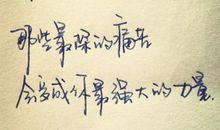 那些最深的痛苦
会变成你最强大的力量